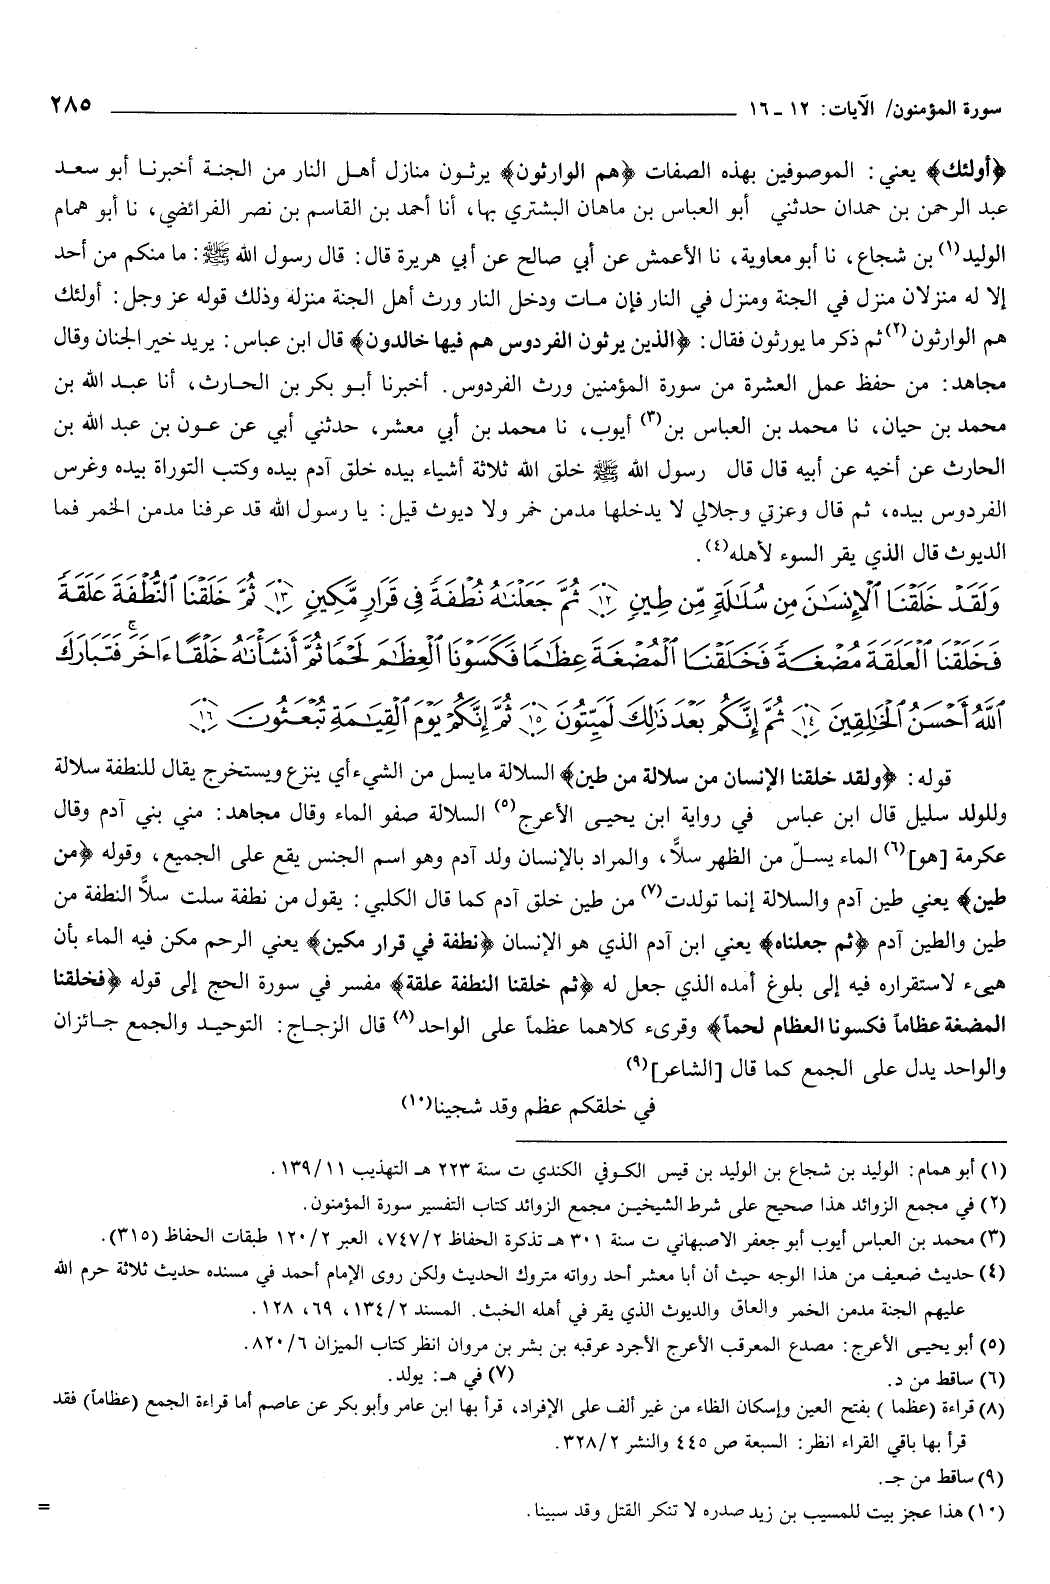 سورة المؤمنون/ الآيات: ١٢ ـ ١٦ ٢٨٥
﴿أولئك﴾ يعني: الموصوفين بهذه الصفات ﴿هم الوارثون﴾ يرثون منازل أهل النار من الجنة أخبرنا أبو سعد
عبد الرحمن بن حمدان حدثني أبو العباس بن ماهان البشتري بها، أنا أحمد بن القاسم بن نصر الفرائضي، نا أبو همام
الوليد(١) بن شجاع، نا أبو معاوية، نا الأعمش عن أبي صالح عن أبي هريرة قال: قال رسول الله ﷺ: ما منكم من أحد
إلا له منزلان منزل في الجنة ومنزل في النار فإن مات ودخل النار ورث أهل الجنة منزله وذلك قوله عز وجل: أولئك
هم الوارثون(٢) ثم ذكر ما يورثون فقال: ﴿الذين يرثون الفردوس هم فيها خالدون﴾ قال ابن عباس: يريد خير الجنان وقال
مجاهد: من حفظ عمل العشرة من سورة المؤمنين ورث الفردوس. أخبرنا أبو بكر بن الحارث، أنا عبد الله بن
محمد بن حيان، نا محمد بن العباس بن(٣) أيوب، نا محمد بن أبي معشر، حدثني أبي عن عون بن عبد الله بن
الحارث عن أخيه عن أبيه قال قال رسول الله ﷺ خلق الله ثلاثة أشياء بيده خلق آدم بيده وكتب التوراة بيده وغرس
الفردوس بيده، ثم قال وعزتي وجلالي لا يدخلها مدمن خمر ولا ديوث قيل: يا رسول الله قد عرفنا مدمن الخمر فما
الديوث قال الذي يقر السوء لأهله(٤).
وَلَقَدْ خَلَقْنَا ٱلْإِنسَٰنَ مِن سُلَٰلَةٍ مِّن طِينٍ ۝١٢ ثُمَّ جَعَلْنَٰهُ نُطْفَةً فِى قَرَارٍ مَّكِينٍ ۝١٣ ثُمَّ خَلَقْنَا ٱلنُّطْفَةَ عَلَقَةً
فَخَلَقْنَا ٱلْعَلَقَةَ مُضْغَةً فَخَلَقْنَا ٱلْمُضْغَةَ عِظَٰمًا فَكَسَوْنَا ٱلْعِظَٰمَ لَحْمًا ثُمَّ أَنشَأْنَٰهُ خَلْقًا ءَاخَرَ ۚ فَتَبَارَكَ
ٱللَّهُ أَحْسَنُ ٱلْخَٰلِقِينَ ۝١٤ ثُمَّ إِنَّكُم بَعْدَ ذَٰلِكَ لَمَيِّتُونَ ۝١٥ ثُمَّ إِنَّكُمْ يَوْمَ ٱلْقِيَٰمَةِ تُبْعَثُونَ ۝١٦
قوله: ﴿ولقد خلقنا الإنسان من سلالة من طين﴾ السلالة مايسل من الشيء أي ينزع ويستخرج يقال للنطفة سلالة
وللولد سليل قال ابن عباس في رواية ابن يحيى الأعرج(٥) السلالة صفو الماء وقال مجاهد: مني بني آدم وقال
عكرمة [هو](٦) الماء يسلّ من الظهر سلاًّ، والمراد بالإنسان ولد آدم وهو اسم الجنس يقع على الجميع، وقوله ﴿من
طين﴾ يعني طين آدم والسلالة إنما تولدت(٧) من طين خلق آدم كما قال الكلبي: يقول من نطفة سلت سلاًّ النطفة من
طين والطين آدم ﴿ثم جعلناه﴾ يعني ابن آدم الذي هو الإنسان ﴿نطفة في قرار مكين﴾ يعني الرحم مكن فيه الماء بأن
هيىء لاستقراره فيه إلى بلوغ أمده الذي جعل له ﴿ثم خلقنا النطفة علقة﴾ مفسر في سورة الحج إلى قوله ﴿فخلقنا
المضغة عظاماً فكسونا العظام لحماً﴾ وقرىء كلاهما عظماً على الواحد(٨) قال الزجاج: التوحيد والجمع جائزان
والواحد يدل على الجمع كما قال [الشاعر](٩)
في خلقكم عظم وقد شجينا(١٠)
(١) أبو همام: الوليد بن شجاع بن الوليد بن قيس الكوفي الكندي ت سنة ٢٢٣ هـ التهذيب ١٣٩/١١.
(٢) في مجمع الزوائد هذا صحيح على شرط الشيخين مجمع الزوائد كتاب التفسير سورة المؤمنون.
(٣) محمد بن العباس أيوب أبو جعفر الاصبهاني ت سنة ٣٠١ هـ تذكرة الحفاظ ٧٤٧/٢، العبر ١٢٠/٢ طبقات الحفاظ (٣١٥).
(٤) حديث ضعيف من هذا الوجه حيث أن أبا معشر أحد رواته متروك الحديث ولكن روى الإمام أحمد في مسنده حديث ثلاثة حرم الله
عليهم الجنة مدمن الخمر والعاق والديوث الذي يقر في أهله الخبث. المسند ١٣٤/٢، ٦٩، ١٢٨.
(٥) أبو يحيى الأعرج: مصدع المعرقب الأعرج الأجرد عرقبه بن بشر بن مروان انظر كتاب الميزان ٨٢٠/٦.
(٦) ساقط من د. (٧) في هـ: يولد.
(٨) قراءة (عظما ) بفتح العين وإسكان الظاء من غير ألف على الإفراد، قرأ بها ابن عامر وأبو بكر عن عاصم أما قراءة الجمع (عظاماً) فقد
قرأ بها باقي القراء انظر: السبعة ص ٤٤٥ والنشر ٣٢٨/٢.
(٩) ساقط من جـ.
(١٠) هذا عجز بيت للمسيب بن زيد صدره لا تنكر القتل وقد سبينا. =